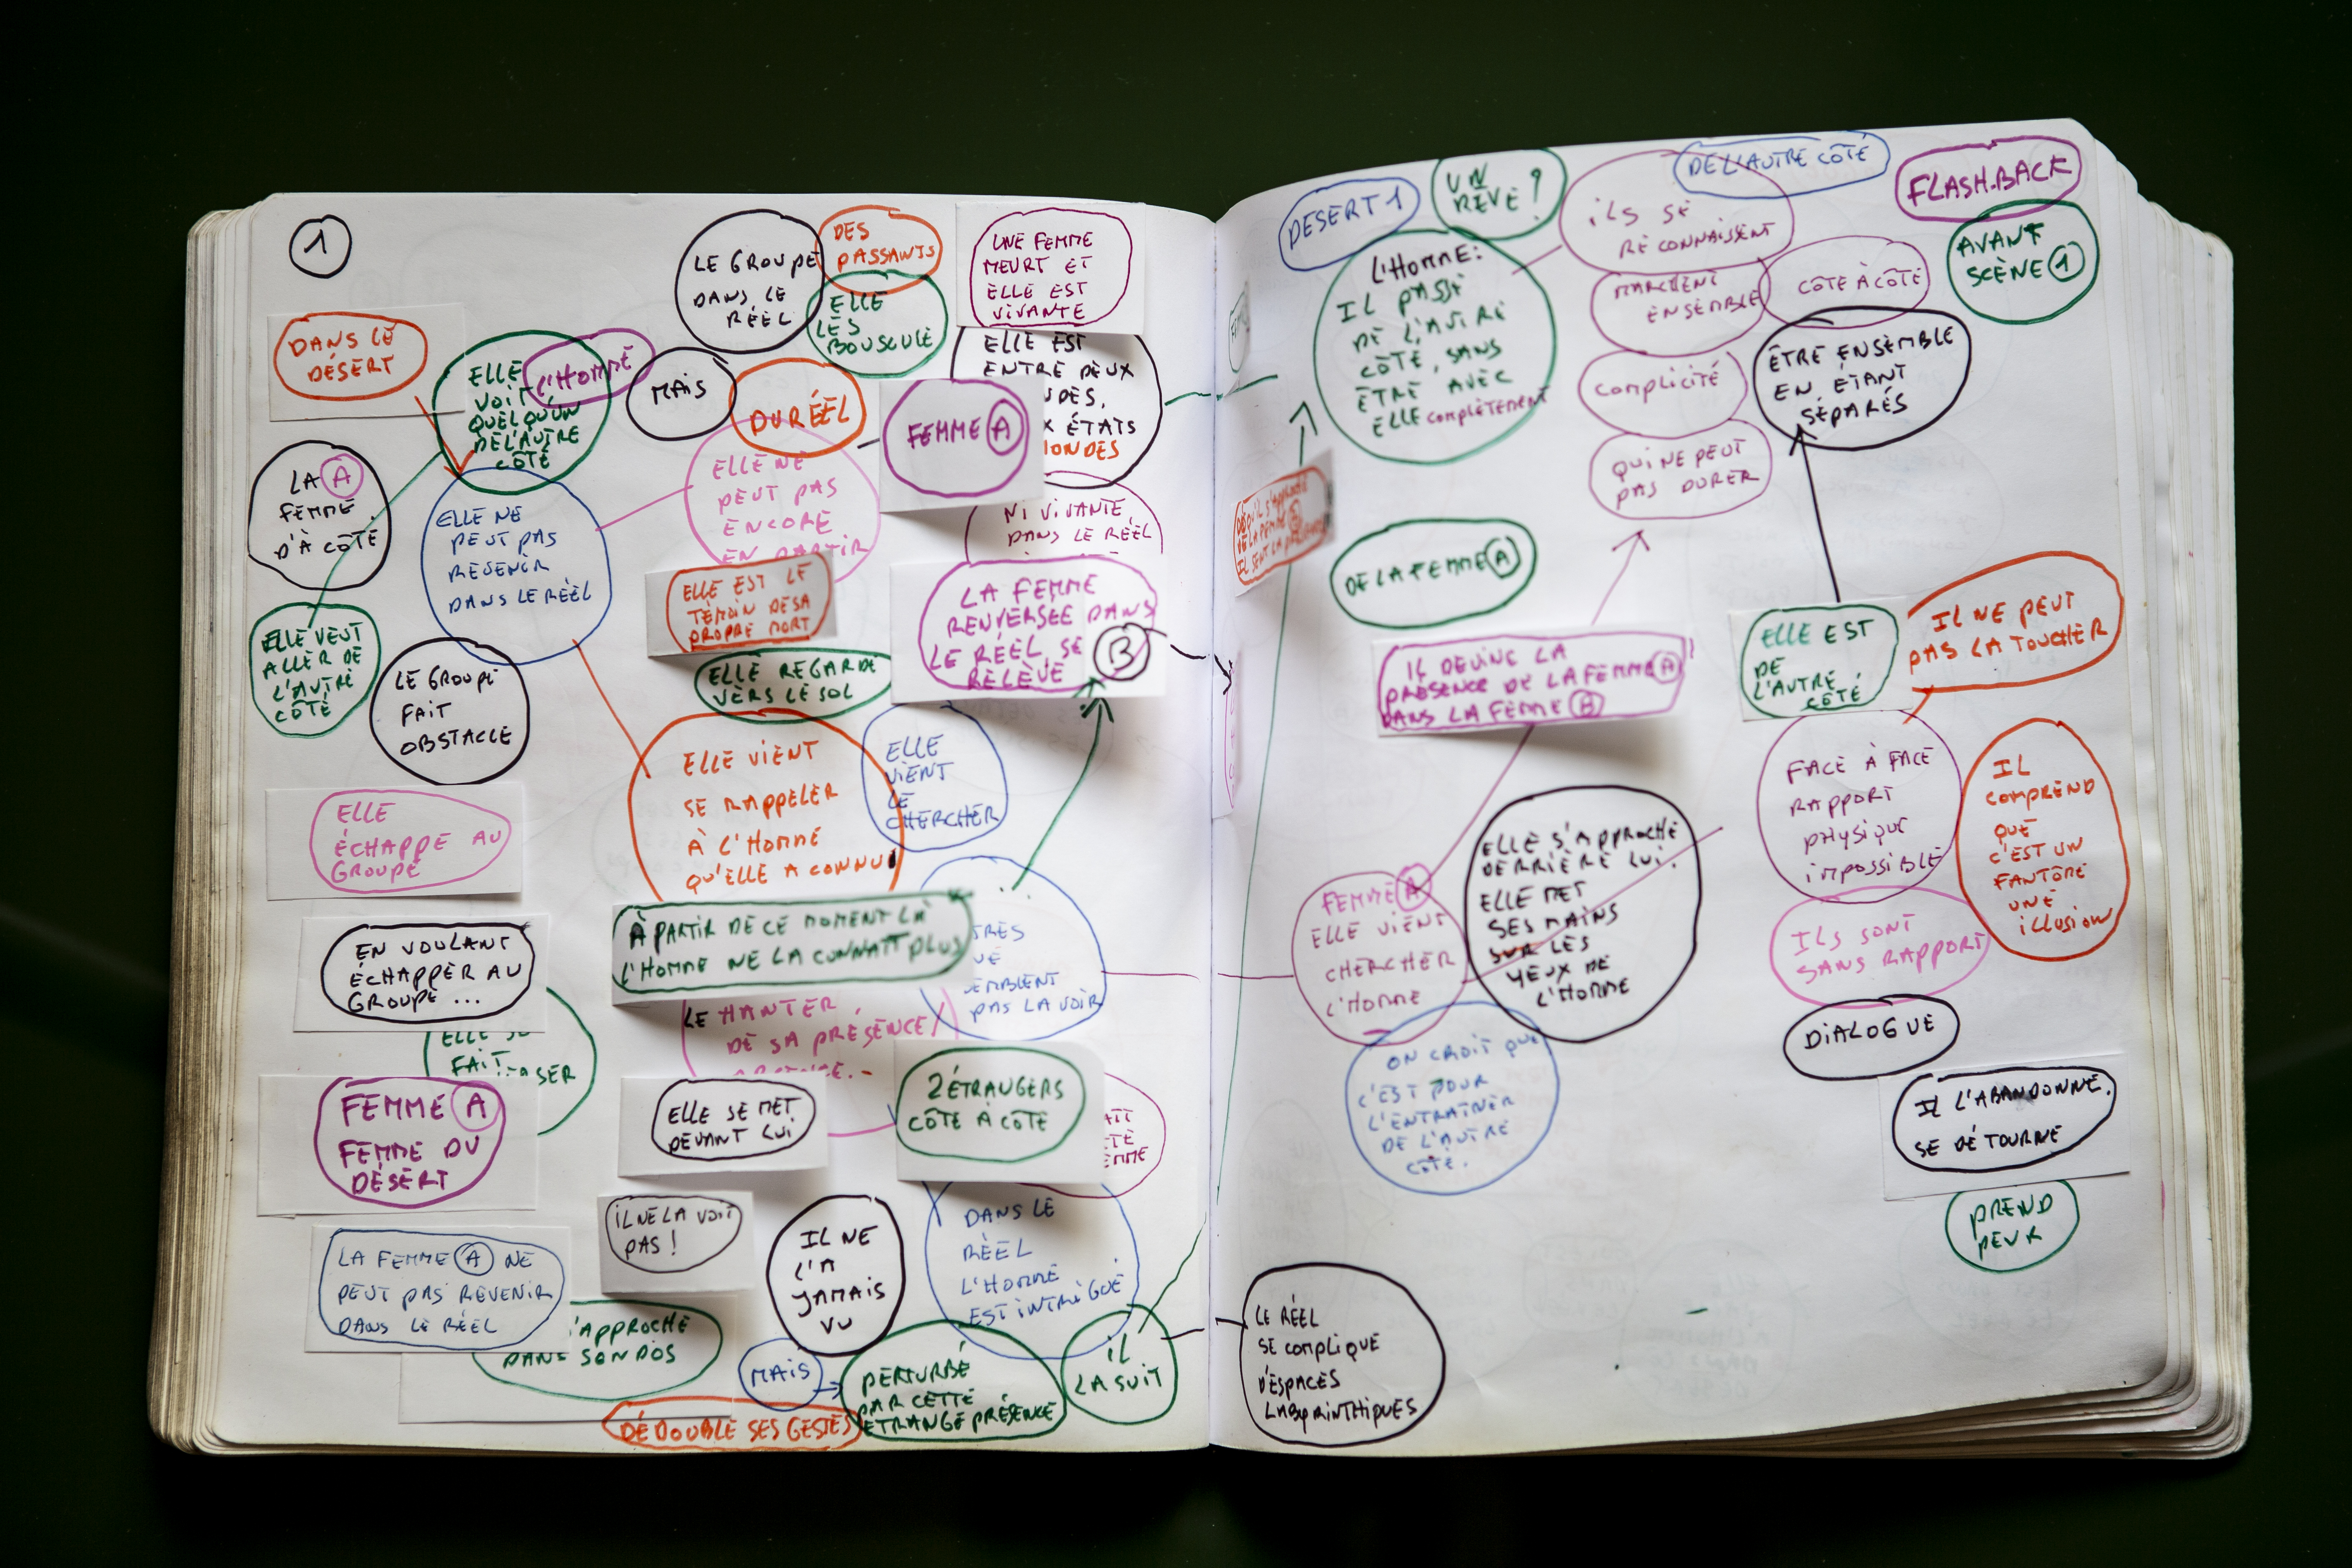 1
DANS LE
DÉSERT
ELLE
VOIT
QUELQU'UN
DE L'AUTRE
CÔTÉ
L'HOMME
MAIS
LE GROUPE
DANS LE
RÉEL
DES
PASSANTS
ELLE
LES
BOUSCULE
DU RÉEL
UNE FEMME
MEURT ET
ELLE EST
VIVANTE
ELLE EST
ENTRE DEUX
ÉTATS
FEMME A
LA A
FEMME
D'À CÔTÉ
ELLE NE
PEUT PAS
REVENIR
DANS LE RÉEL
ELLE NE
PEUT PAS
ENCORE
EN PARTIR
NI VIVANTE
DANS LE RÉEL
ELLE EST LE
TÉMOIN DE SA
PROPRE MORT
LA FEMME
RENVERSÉE DANS
LE RÉEL, SE
RELÈVE
B
ELLE VEUT
ALLER DE
L'AUTRE
CÔTÉ
LE GROUPE
FAIT
OBSTACLE
ELLE REGARDE
VERS LE SOL
ELLE VIENT
SE RAPPELER
À L'HOMME
QU'ELLE A CONNU
ELLE
VIENT
LE
CHERCHER
ELLE
ÉCHAPPE AU
GROUPE
EN VOULANT
ÉCHAPPER AU
GROUPE ...
ELLE
FAIT
À PARTIR DE CE MOMENT LÀ
L'HOMME NE LA CONNAÎT PLUS
PAS LA VOIR
LE HANTER
DE SA PRÉSENCE /
FEMME A
FEMME DU
DÉSERT
ELLE SE MET
DEVANT LUI
2 ÉTRANGERS
CÔTE À CÔTE
LA FEMME A NE
PEUT PAS REVENIR
DANS LE RÉEL
IL NE LA VOIT
PAS !
IL NE
L'A
JAMAIS
VU
DANS LE
RÉEL
L'HOMME
EST INTRIGUÉ
'APPROCHE
DANS SON DOS
MAIS
PERTURBÉ
PAR CETTE
ÉTRANGE PRÉSENCE
IL
LA SUIT
DÉDOUBLE SES GESTES
DESERT 1
UN
RÊVE ?
ILS SE
RECONNAISSENT
DE L'AUTRE CÔTÉ
FLASH-BACK
AVANT
SCÈNE 1
L'HOMME :
IL PASSE
DE L'AUTRE
CÔTÉ, SANS
ÊTRE AVEC
ELLE COMPLÈTEMENT
MARCHENT
ENSEMBLE
CÔTE À CÔTE
COMPLICITÉ
ÊTRE ENSEMBLE
EN ÉTANT
SÉPARÉS
QUI NE PEUT
PAS DURER
DE LA FEMME A
IL DEVINE LA
PRÉSENCE DE LA FEMME A
DANS LA FEMME B
ELLE EST
DE
L'AUTRE
CÔTÉ
IL NE PEUT
PAS LA TOUCHER
FACE À FACE
RAPPORT
PHYSIQUE
IMPOSSIBLE
IL
COMPREND
QUE
C'EST UN
FANTÔME
UNE
ILLUSION
FEMME A
ELLE VIENT
CHERCHER
L'HOMME
ELLE S'APPROCHE
DERRIÈRE LUI.
ELLE MET
SES MAINS
SUR LES
YEUX DE
L'HOMME
ILS SONT
SANS RAPPORT
ON CROIT QUE
C'EST POUR
L'ENTRAÎNER
DE L'AUTRE
CÔTÉ.
DIALOGUE
IL L'ABANDONNE.
SE DÉTOURNE
PREND
PEUR
LE RÉEL
SE COMPLIQUE
D'ESPACES
LABYRINTHIQUES